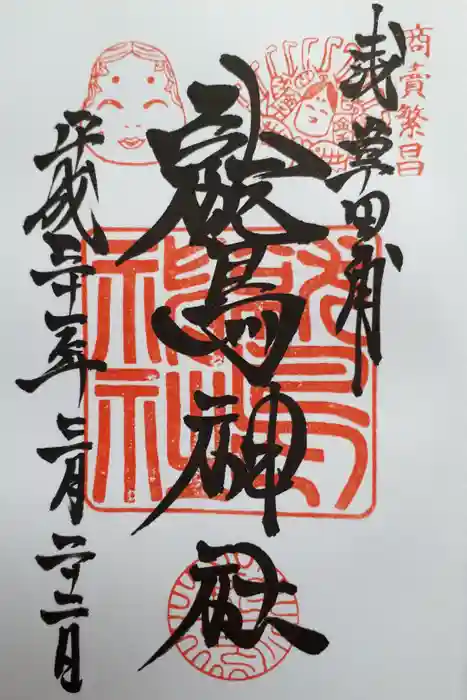 商賣繁昌
浅草田甫
鷲神社
平成三十一年三月二十二日